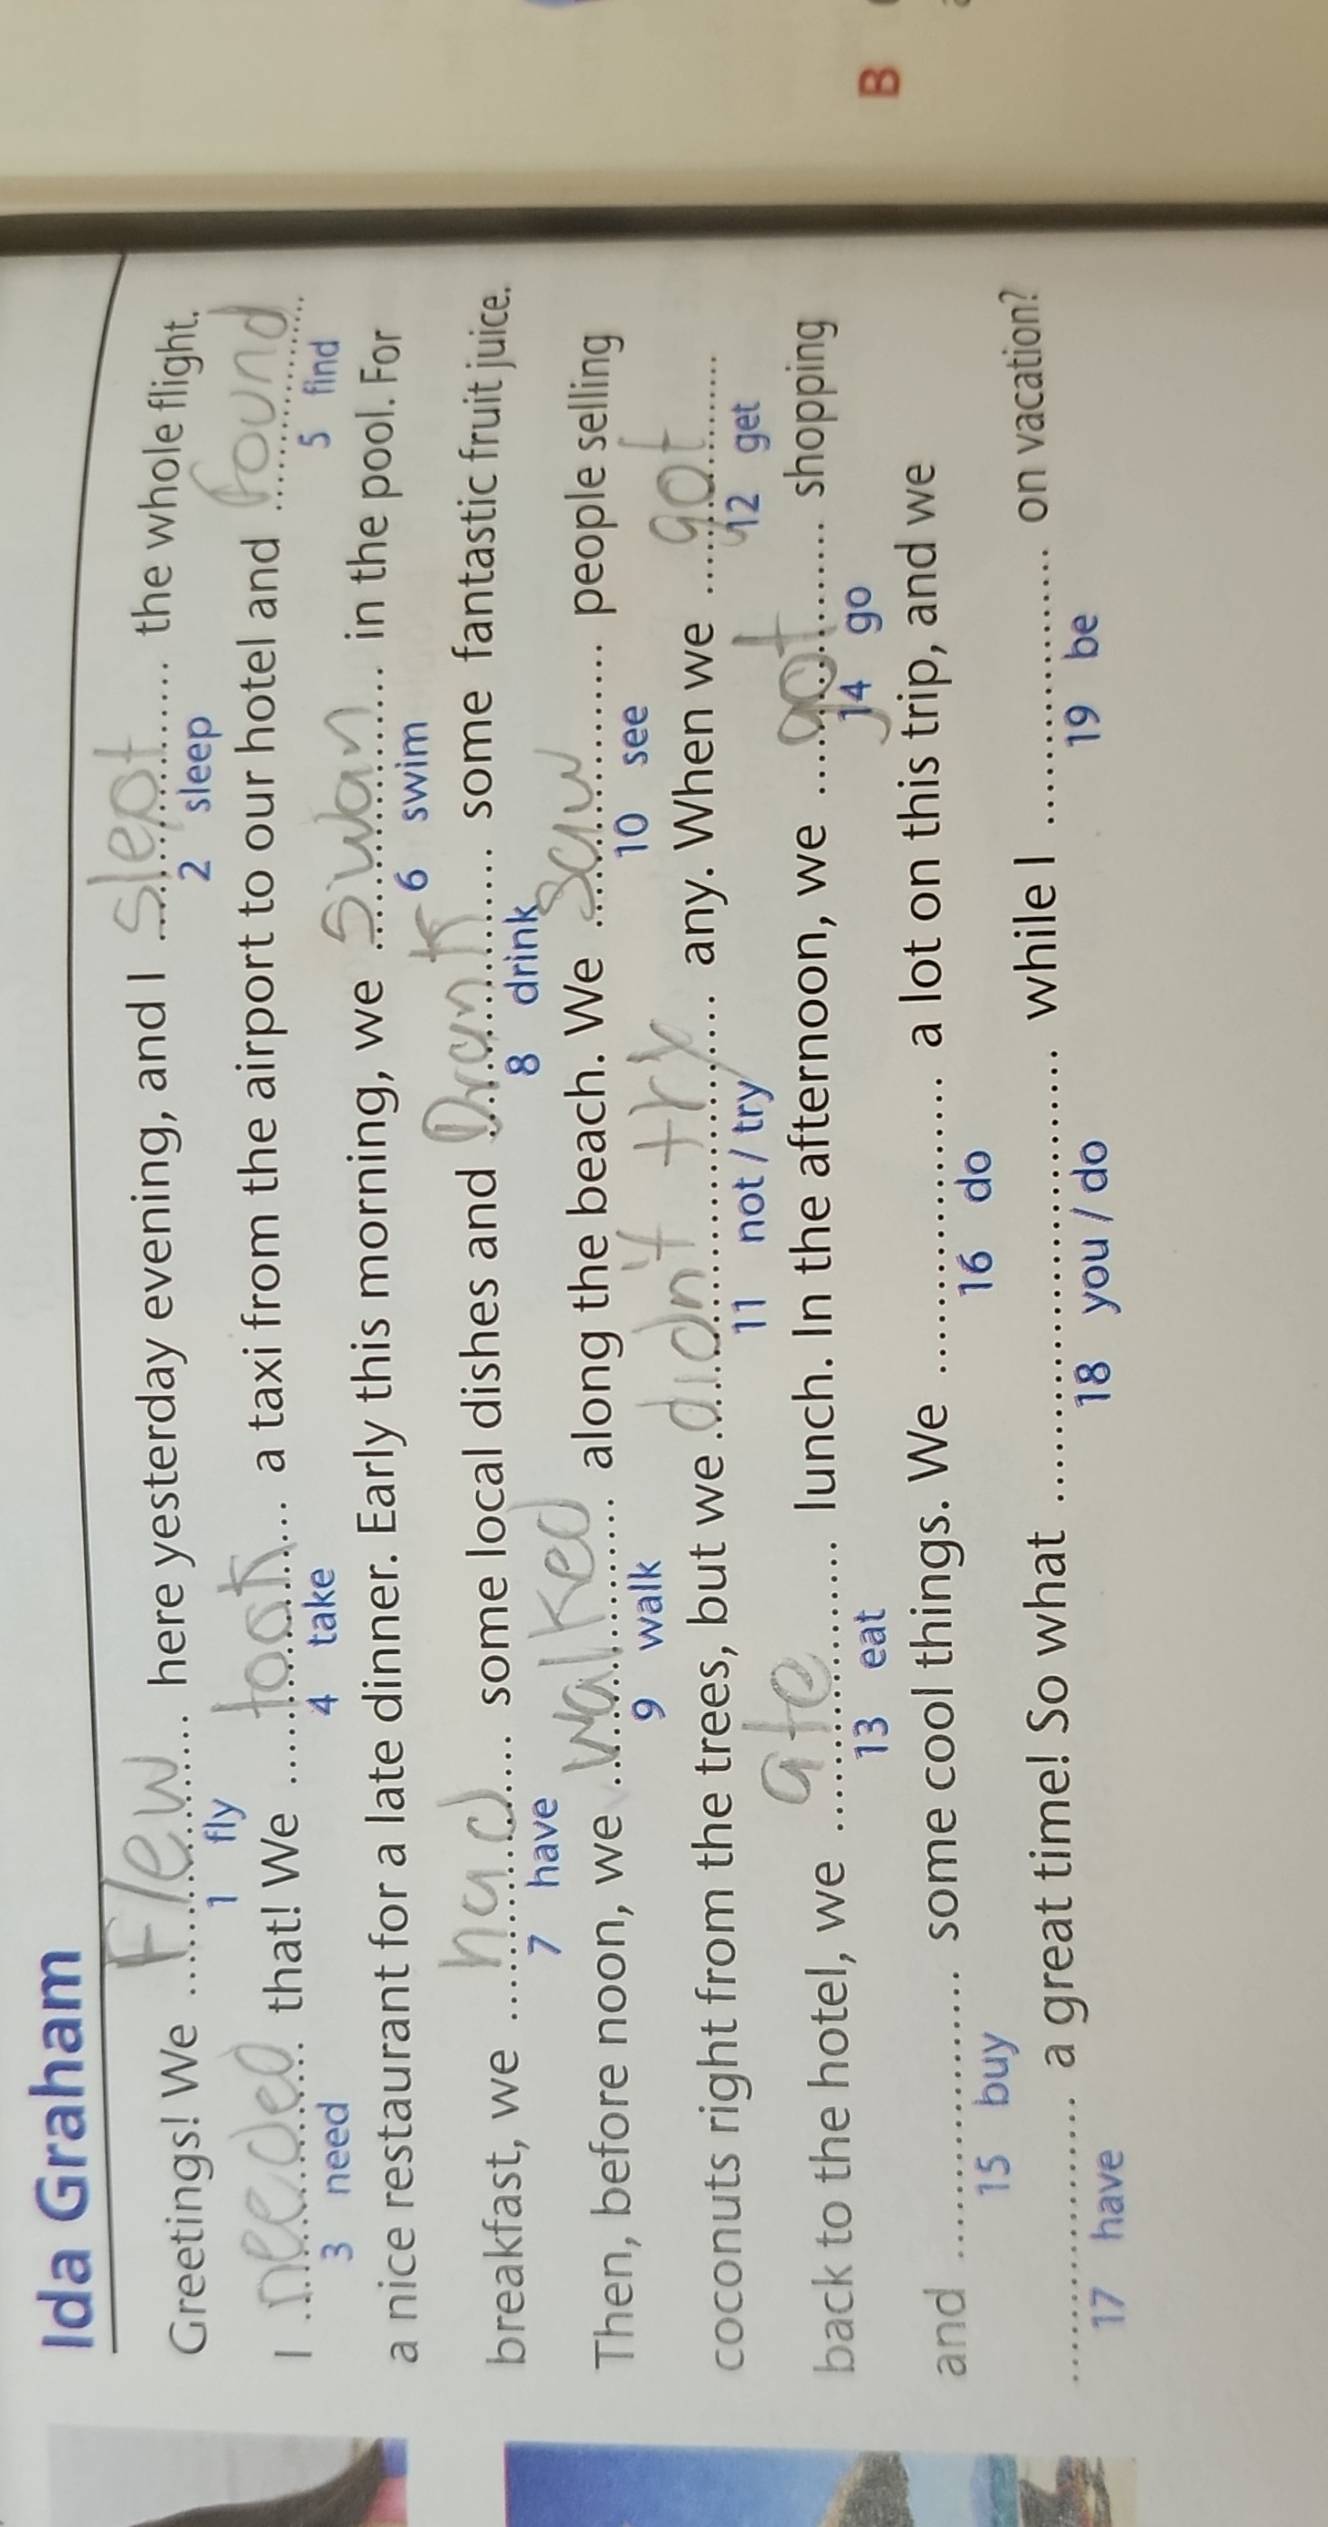 Ida Graham
Greetings! We Flew here yesterday evening, and I slept the whole flight.
1 fly 2 sleep
I needed that! We took a taxi from the airport to our hotel and found
3 need 4 take 5 find
a nice restaurant for a late dinner. Early this morning, we swan in the pool. For
6 swim
breakfast, we had some local dishes and Drank some fantastic fruit juice.
7 have 8 drink
Then, before noon, we walked along the beach. We saw people selling
9 walk 10 see
coconuts right from the trees, but we didn't try any. When we got
11 not / try 12 get
back to the hotel, we ate lunch. In the afternoon, we got shopping
13 eat 14 go
and .................... some cool things. We .................... a lot on this trip, and we
15 buy 16 do
.................... a great time! So what .................... while I .................... on vacation?
17 have 18 you / do 19 be
B